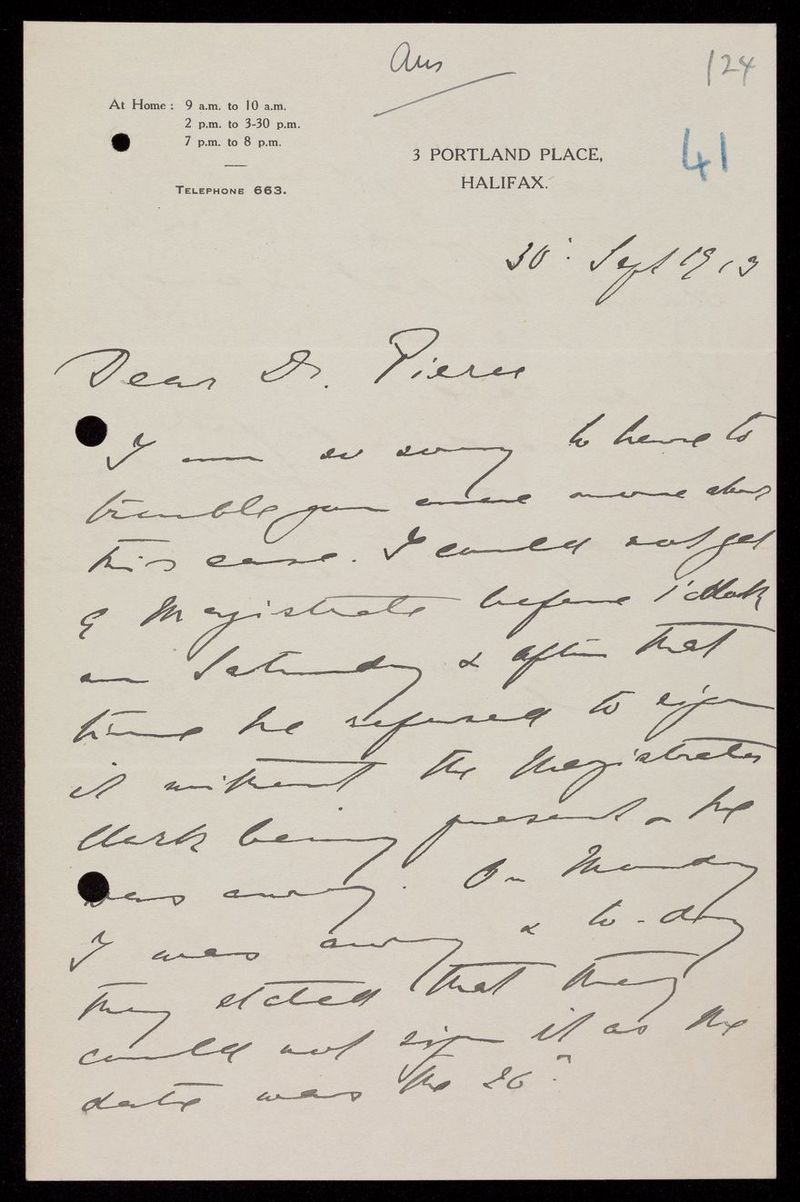 Ans
124
41
At Home : 9 a.m. to 10 a.m.
2 p.m. to 3-30 p.m.
7 p.m. to 8 p.m.
TELEPHONE 663.
3 PORTLAND PLACE,
HALIFAX.
30. Sept 1913
Dear Dr. Pierce
I am so sorry to have to
trouble you once more about
this case. I could not get
a Magistrate before 1 o'clock
on Saturday & after that
time he refused to sign
it without the Magistrates
Clerk being present & he
was away. On Monday
I was away & to-day
they stated that they
could not sign it as the
date was the 26th